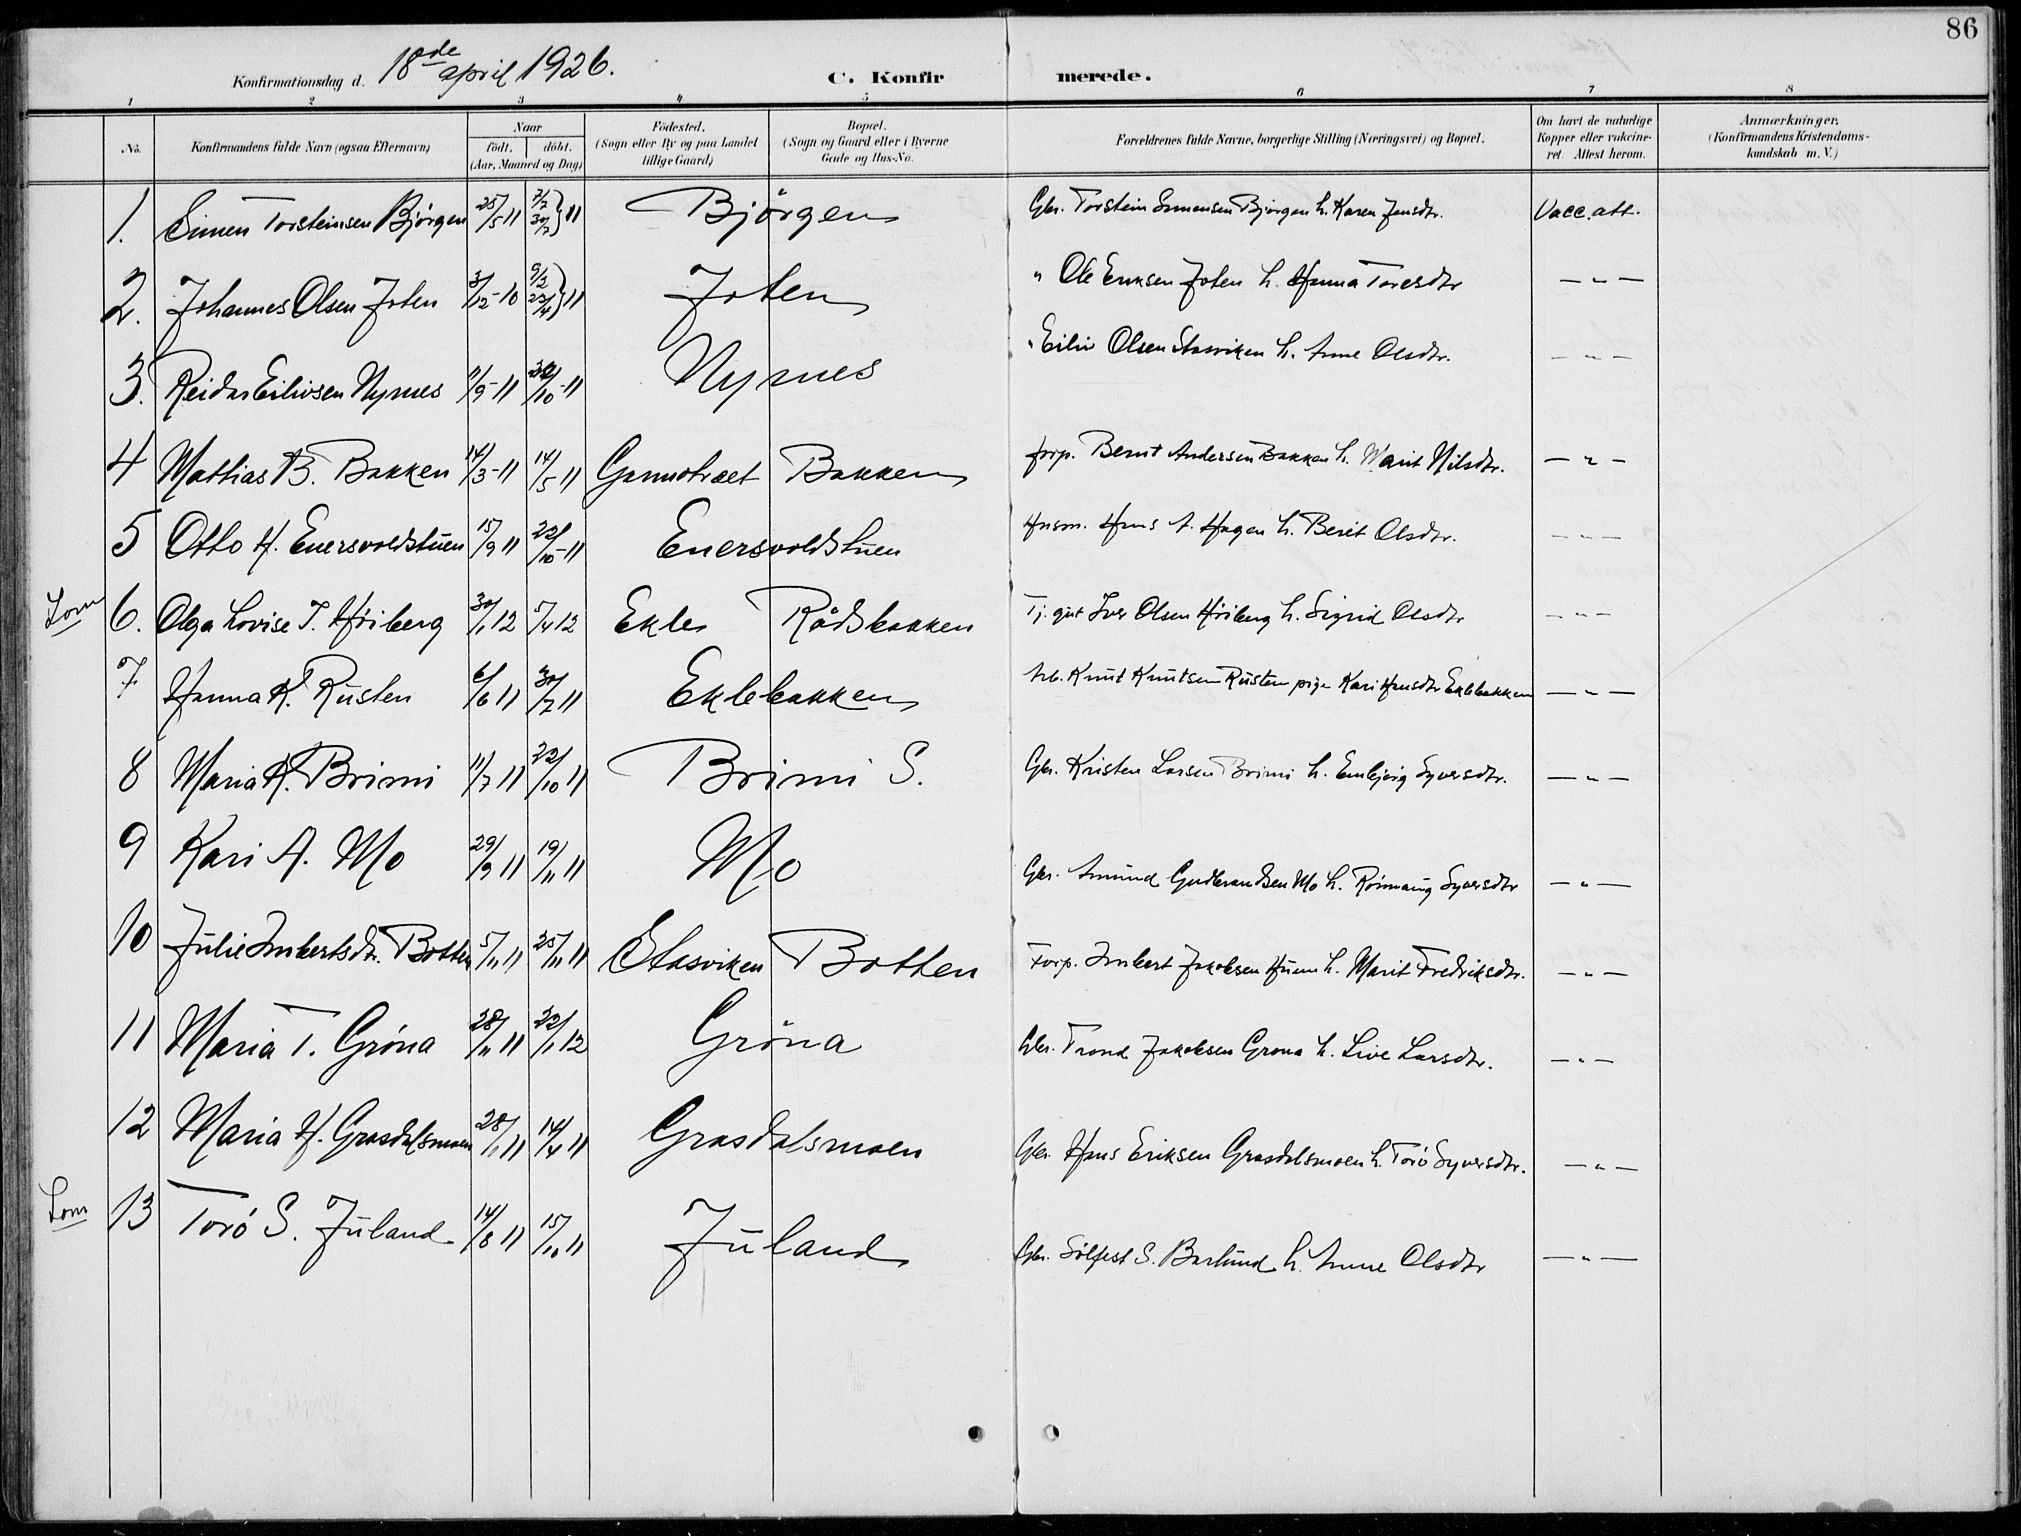 86
Konfirmationsdag d. 18de april 1926. C. Konfirmerede.
1 2 3 4 5 6 7 8
No. Konfirmandens fulde Navn (ogsaa Efternavn) Naar födt. döbt. (Aar, Maaned og Dag) Födested. (Sogn eller By og paa Landet tillige Gaard) Bopæl. (Sogn og Gaard eller i Byerne Gade og Hus-No. Forældrenes fulde Navne, borgerlige Stilling (Næringsvei) og Bopæl. Om havt de naturlige Kopper eller vakcineret. Attest herom. Anmærkninger. (Konfirmandens Kristendomskundskab m. V.)
1. Simen Torsteinsen Bjørgen 25/5 11 11 Bjørgen Gbr. Torstein Simensen Bjørgen h. Karen Jensdtr. Vacc. att.
2. Johannes Olsen Joten 3/12-10 9/2 23/4 } 11 Joten " Ole Eriksen Joten h. Hanna Toresdtr — " —
3. Reidar Eilivsen Nymes 11/9-11 /10-11 Nymes " Eiliv Olsen Stasviken h. Anne Olsdtr. — " —
4 Mathias B. Bakken 14/3-11 14/5 11 Bakken forp. Bernt Andersen Bakken h. Marit Nilsdtr. — " —
5 Otto H. Enersvoldstuen 15/9 11 22/10-11 Enersvoldstuen Husm. Hans A. Hagen h. Berit Olsdtr. — " —
Lom 6. Olga Lovise I. Høiberg 30/1 12 5/4 12 Ekle Rådsbakken Tj. gut Iver Olsen Høiberg h. Sigrid Olsdtr — " —
7 Hanna K. Rusten 6/6 11 30/7 11 Eklebakken Arb. Knut Knutsen Rusten pige Kari Hansdtr Eklebakken — " —
8 Maria K. Brimi 11/7 11 22/10 11 Brimi S. Gbr. Kristen Larsen Brimi h. Embjørg Syversdtr. — " —
9 Kari A. Mo 29/9 11 19/11 11 Mo Gbr. Amund Gudbrandsen Mo h. Rønnaug Syversdtr — " —
10 Julie Imbertsdtr. Botten 5/11 11 25/11 11 Stasviken Botten Forp. Imbert Jakobsen h. Marit Fredriksdtr. — " —
11 Maria T. Gröna 28/11 11 22/1 12 Gröna Gbr. Trond Jakobsen Grona h. Live Larsdtr. — " —
12 Maria H. Grasdalsmoen 28/1 11 14/4 11 Grasdalsmoen Gbr. Hans Eriksen Grasdalsmoen h. Toro Syversdtr. — " —
Lom 13 Toró S. Juland 14/8 11 15/10 11 Juland Gbr. Sølfest S. h. Anne Olsdtr — " —